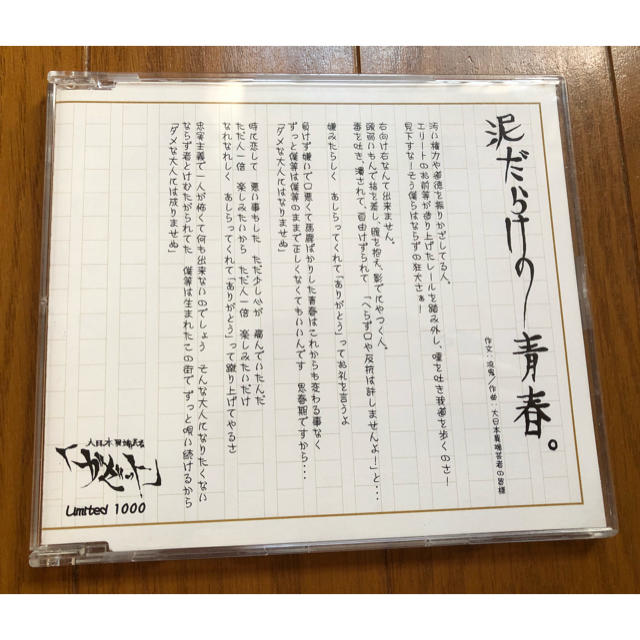 泥だらけの青春。
作文：流鬼／作曲：大日本異端芸者の皆様
汚い権力や道徳を振りかざしてる人。
エリートのお前等が造り上げたレールを踏み外し、唾を吐き我道を歩くのさ！
見下すな！そう僕らはならずの狂犬さぁ！
右向け右なんて出来ません。
頭弱いもんで指を差し、腹を抱え、影で化やつく人。
毒を吐き、潰されて、自由けずられて 「へらず口や反抗は許しませんよ！」と・・・
嫌みたらしく あしらってくれて「ありがとう」ってお礼を言うよ
負けず嫌いで口悪くて馬鹿ばかりした青春はこれからも変わる事なく
ずっと僕等は僕等のままで正しくなくてもいいんです 思春期ですから・・・
「ダメな大人にはなりませぬ」
時に恋して 悪い事もした ただ少し心が 痛んでいたんだ
ただ人一倍 楽しみたいから ただ人一倍 楽しみたいだけ
なれなれしく あしらってくれて「ありがとう」って蹴り上げてやるさ
忠実主義で一人が怖くて何も出来ないのでしょう そんな大人になりたくない
ならず者とけむたがられてた 僕等は生まれたこの街でずっと唄い続けるから
「ダメな大人には成りませぬ」
大日本異端芸者
「ガゼット」
Limited 1000